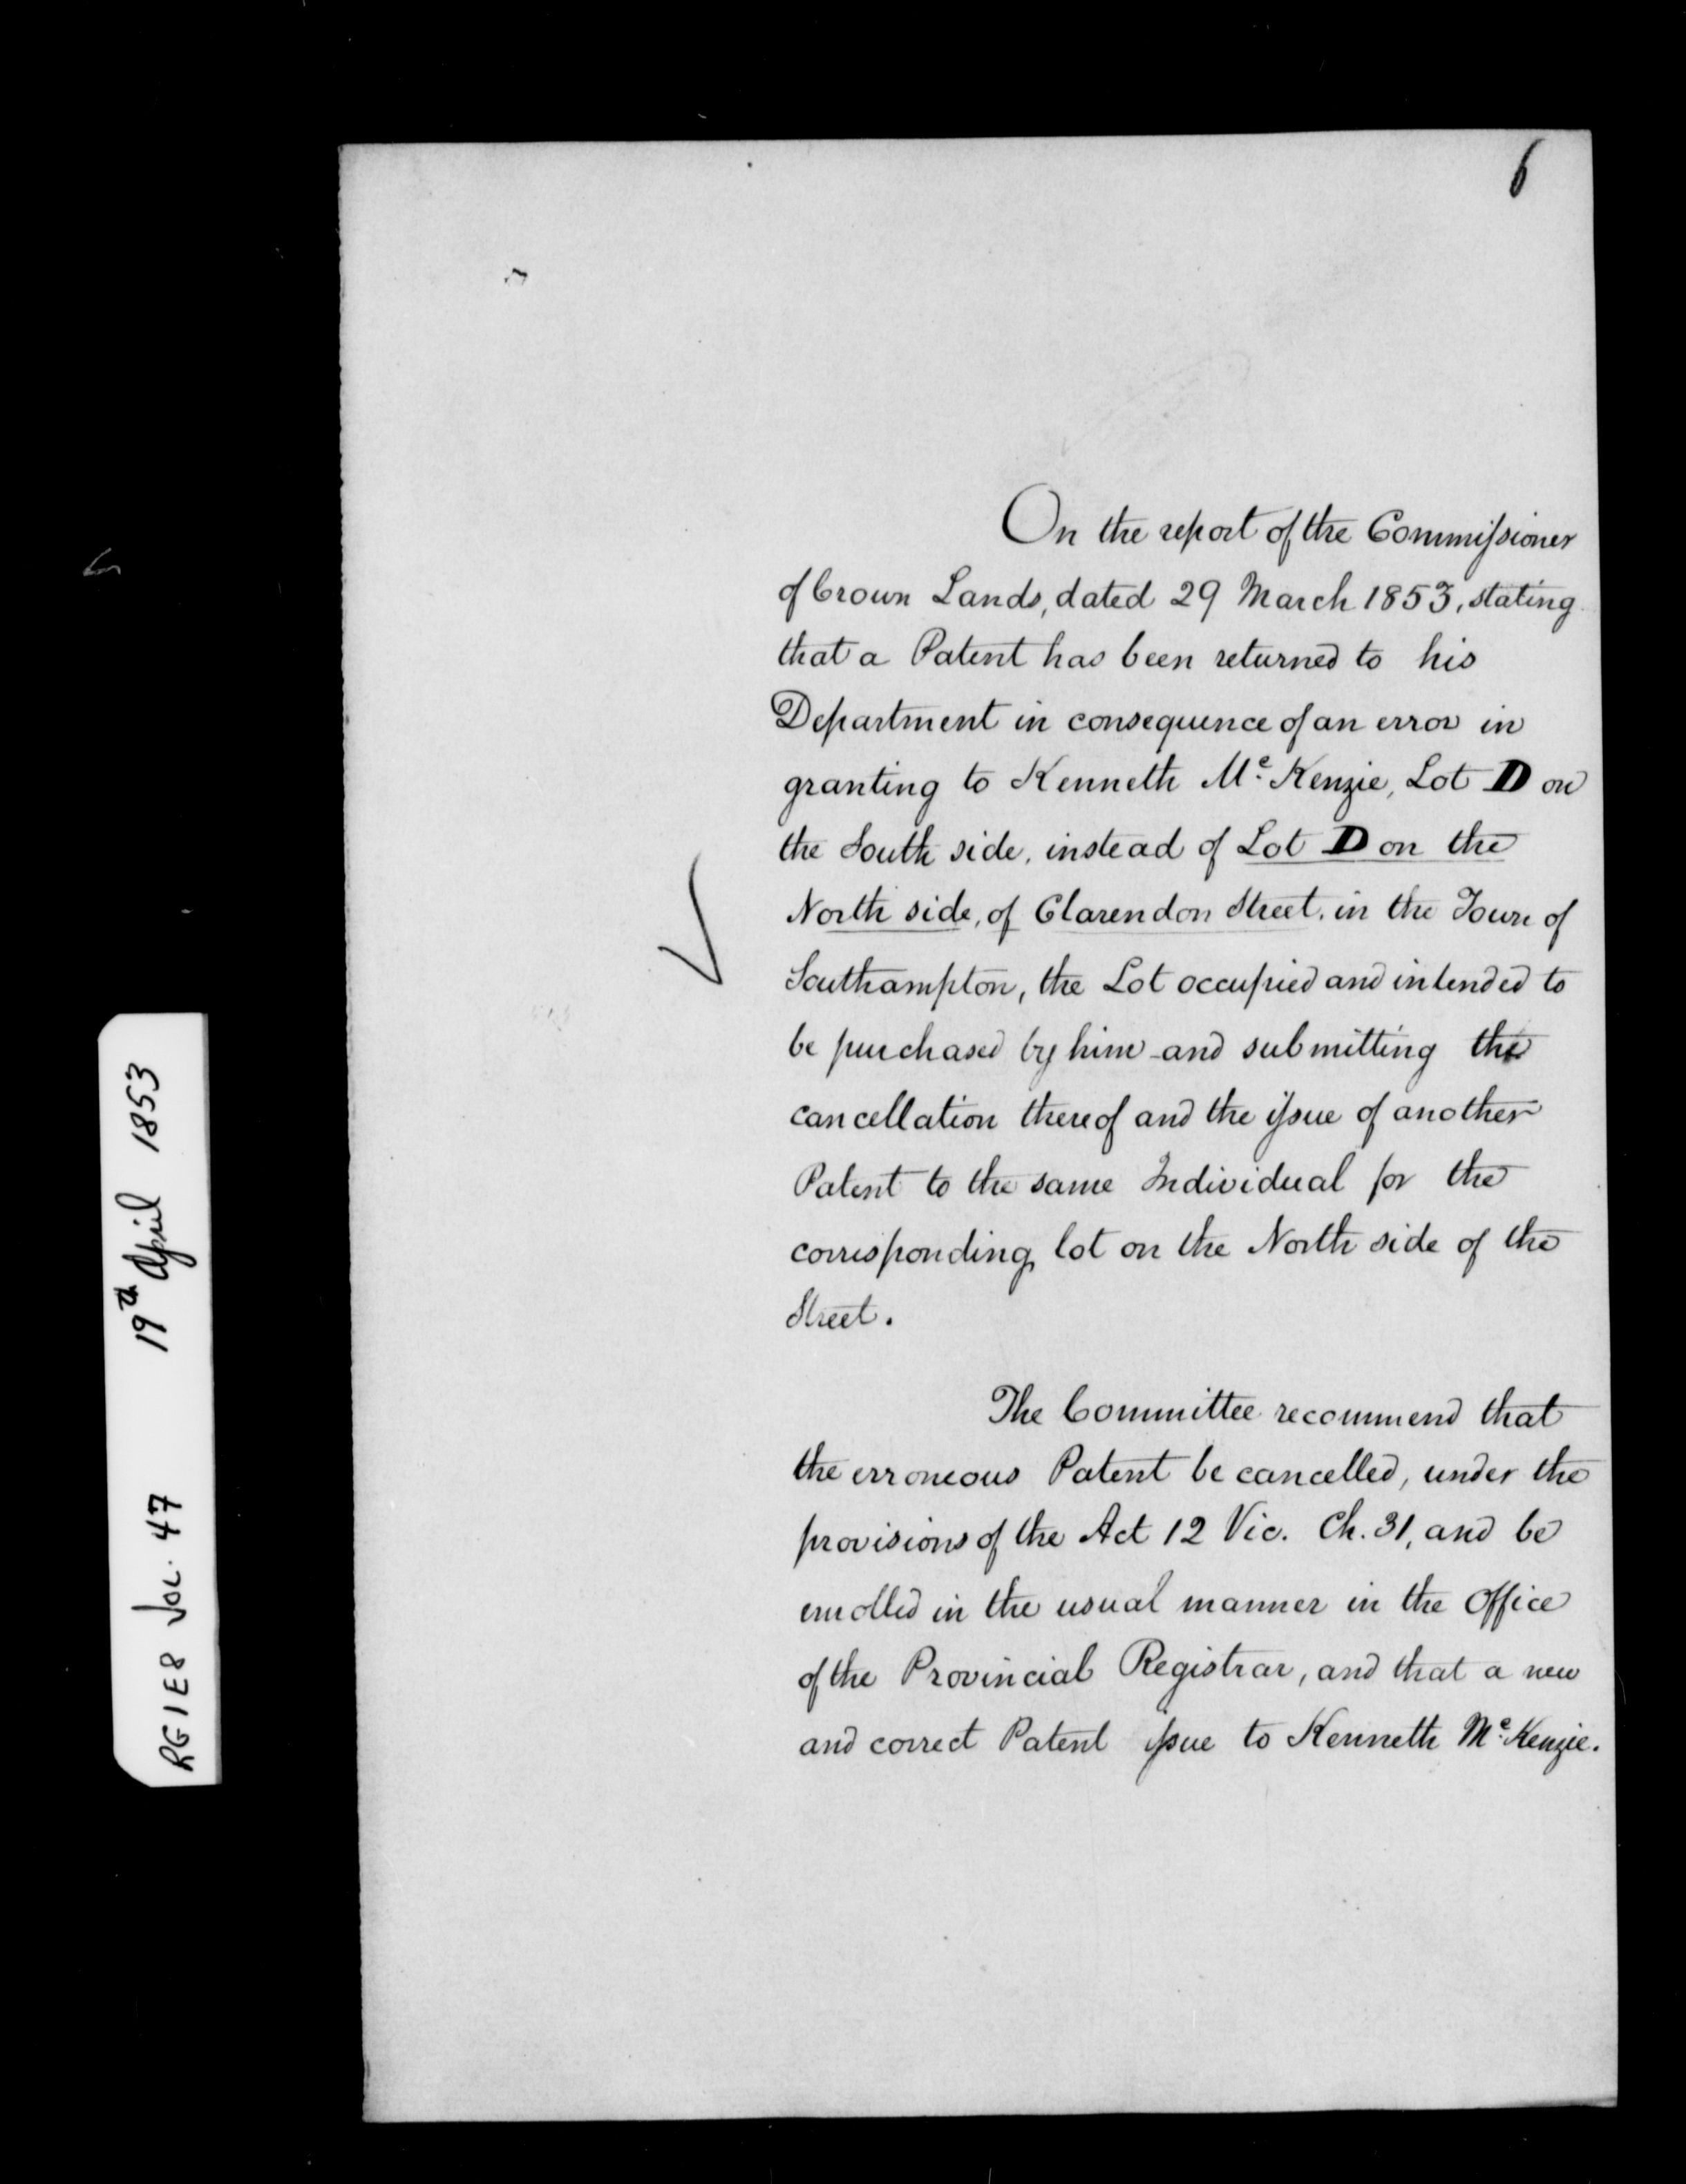 6
On the report of the Commissioner
of Crown Lands, dated 29 March 1853, stating
that a Patent has been returned to his
Department in consequence of an error in
granting to Kenneth Mc. Kenzie, Lot D on
the South side, instead of Lot D on the
North side, of Clarendon Street, in the Town of
Southampton, the Lot occupied and intended to
be purchased by him and submitting the
cancellation thereof and the issue of another
Patent to the same Individual for the
corresponding lot on the North side of the
Street.
The Committee recommend that
the erroneous Patent be cancelled, under the
provisions of the Act 12 Vic. Ch. 31, and be
enrolled in the usual manner in the Office
of the Provincial Registrar, and that a new
and correct Patent issue to Kenneth Mc. Kenzie.
RG1E8 VOL. 47 19th April 1853